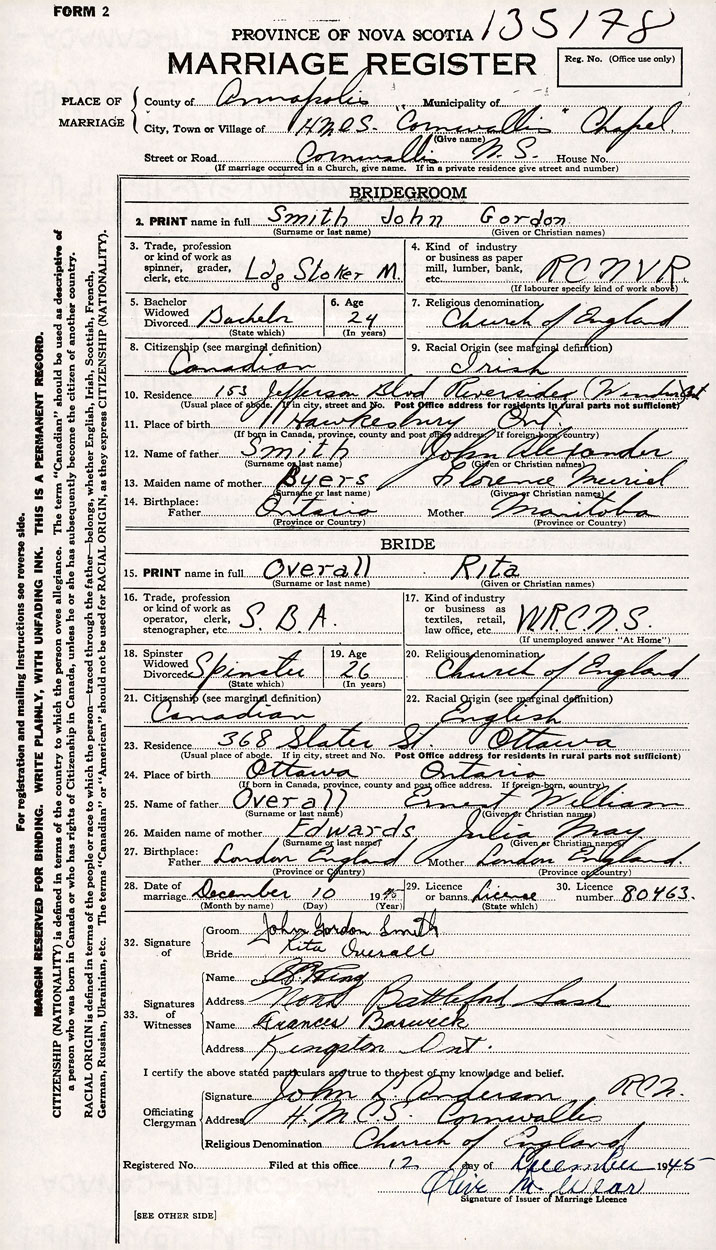 FORM 2
PROVINCE OF NOVA SCOTIA 135178
MARRIAGE REGISTER
Reg. No. (Office use only)
PLACE OF MARRIAGE
County of Annapolis Municipality of
City, Town or Village of H.M.C.S. "Cornwallis" Chapel
(Give name)
Street or Road Cornwallis N.S. House No.
(If marriage occurred in a Church, give name. If in a private residence give street and number)
BRIDEGROOM
2. PRINT name in full Smith John Gordon
(Surname or last name) (Given or Christian names)
3. Trade, profession or kind of work as spinner, grader, clerk, etc. Ldg Stoker M.
4. Kind of industry or business as paper mill, lumber, bank, etc. R.C.N.V.R.
(If labourer specify kind of work above)
5. Bachelor Widowed Divorced Bachelor
(State which)
6. Age 24
(In years)
7. Religious denomination Church of England
8. Citizenship (see marginal definition) Canadian
9. Racial Origin (see marginal definition) Irish
10. Residence 153 Jefferson Blvd Riverside (Windsor) Ont
(Usual place of abode. If in city, street and No. Post Office address for residents in rural parts not sufficient)
11. Place of birth Hawkesbury Ont
(If born in Canada, province, county and post office address. If foreign-born, country)
12. Name of father Smith John Alexander
(Surname or last name) (Given or Christian names)
13. Maiden name of mother Byers Florence Muriel
(Surname or last name) (Given or Christian names)
14. Birthplace: Father Ontario Mother Manitoba
(Province or Country) (Province or Country)
BRIDE
15. PRINT name in full Overall Rita
(Surname or last name) (Given or Christian names)
16. Trade, profession or kind of work as operator, clerk, stenographer, etc. S.B.A.
17. Kind of industry or business as textiles, retail, law office, etc. W.R.C.N.S.
(If unemployed answer "At Home")
18. Spinster Widowed Divorced Spinster
(State which)
19. Age 26
(In years)
20. Religious denomination Church of England
21. Citizenship (see marginal definition) Canadian
22. Racial Origin (see marginal definition) English
23. Residence 368 Slater St. Ottawa
(Usual place of abode. If in city, street and No. Post Office address for residents in rural parts not sufficient)
24. Place of birth Ottawa Ontario
(If born in Canada, province, county and post office address. If foreign-born, country)
25. Name of father Overall Ernest William
(Surname or last name) (Given or Christian names)
26. Maiden name of mother Edwards Julia May
(Surname or last name) (Given or Christian names)
27. Birthplace: Father London England Mother London England.
(Province or Country) (Province or Country)
28. Date of marriage December 10 1945
(Month by name) (Day) (Year)
29. Licence or banns License
(State which)
30. Licence number 80463.
32. Signature of
Groom John Gordon Smith
Bride Rita Overall
33. Signatures of Witnesses
Name King
Address North Battleford Sask
Name Frances Barwick
Address Kingston Ont.
I certify the above stated particulars are true to the best of my knowledge and belief.
Officiating Clergyman
Signature John L. Anderson RCN.
Address H.M.C.S. Cornwallis
Religious Denomination Church of England
Registered No. Filed at this office 12 day of December 1945
Olive M. Wear
Signature of Issuer of Marriage Licence
[SEE OTHER SIDE]
For registration and mailing instructions see reverse side.
MARGIN RESERVED FOR BINDING. WRITE PLAINLY, WITH UNFADING INK. THIS IS A PERMANENT RECORD.
CITIZENSHIP (NATIONALITY) is defined in terms of the country to which the person owes allegiance. The term "Canadian" should be used as descriptive of
a person who was born in Canada or who has rights of Citizenship in Canada, unless he or she has subsequently become the citizen of another country.
RACIAL ORIGIN is defined in terms of the people or race to which the person—traced through the father—belongs, whether English, Irish, Scottish, French,
German, Russian, Ukrainian, etc. The terms "Canadian" or "American" should not be used for RACIAL ORIGIN, as they express CITIZENSHIP (NATIONALITY).